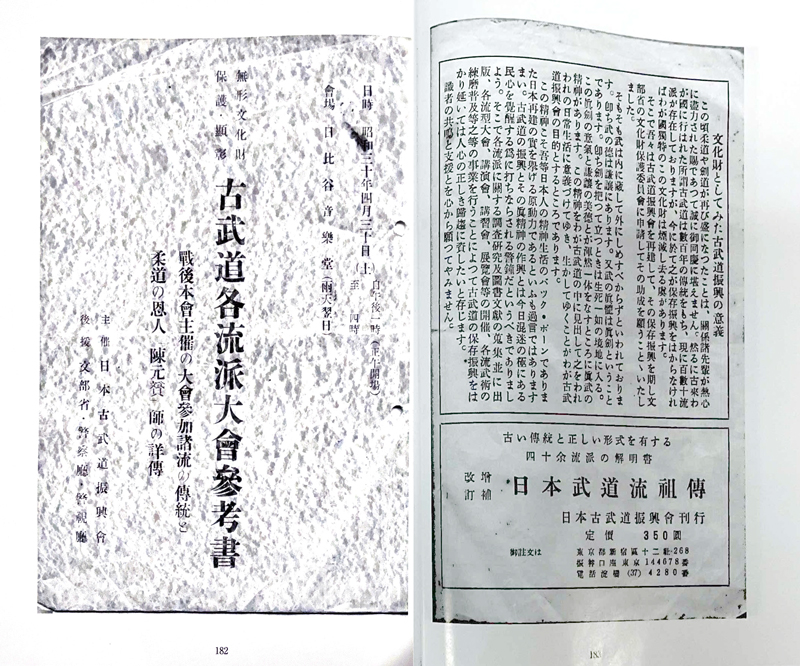 日時 昭和三十年四月三十日(土)
自午後一時(正午開場)
至 四時
會場 日比谷音樂堂(雨天翌日)
無形文化財
保護・顯彰
古武道各流派大會參考書
戰後本會主催の大會參加諸流の傳統と
柔道の恩人 陳元贇師の詳傳
主催 日本古武道振興會
後援 文部省・警察廳・警視廳
182
文化財としてみた古武道振興の意義
この頃柔道や劍道が再び盛になつたことは、關係諸先輩が熱心
に盡力された賜であつて誠に御同慶に堪えません。然るに古來わ
が國に行はれた所謂古武道は數百年の傳統をもち、現に百數十流
派が存在しておりますが、今に於てこれが保存振興をはからなけれ
ばわが國獨特のこの文化財は煙滅し去る處があります。
そこで吾々は古武道振興會を再建して、その保存振興を期し文
部省の文化財保護委員會に申請してその助成を願うことゝいたし
ました。
そもそも武は内に藏して外にしめすべからずといわれておりま
す。卽ち武の德は謙讓にあります。又武の眞髓は眞劍ということ
であります。卽ち劍を把つて立つときは生死一如の境地に入る。
この眞劍の意氣と謙讓の美德とが渾然一体をなすところに眞武の
精神があります。この精神をわが古武道の中に見出して之をわれ
われの日常生活に意義づけてゆき、生かしてゆくことがわが古武
道振興會の目的とするところであります。
この精神こそ吾等日本人の精神生活のバック・ボーンでありま
た日本再建の實を擧げる原動力であるといふも過言ではあります
まい。古武道の振興とその眞精神の作興とは今日混迷の極にある
民心を覺醒する爲に打ちならされる警鐘だというべきでありまし
よう。そこで各流派に關する調査研究及圖書文獻の蒐集並に出
版、各流型大會、講演會、講習會、展覽會等の開催、各流武術の
練磨普及等之等の事業を行うことによつて古武道の保存振興をは
かり延いては人心の正しき歸趨に資したいと存じます。
識者の共鳴と支援とを心から願つてやみません。
古い傳統と正しい形式を有する
四十余流派の解明書
增補
改訂
日本武道流祖傳
日本古武道振興會刊行
定價 350圓
御註文は
東京都新宿區十二社268
振替口座東京144678番
電話淀橋(37)4280番